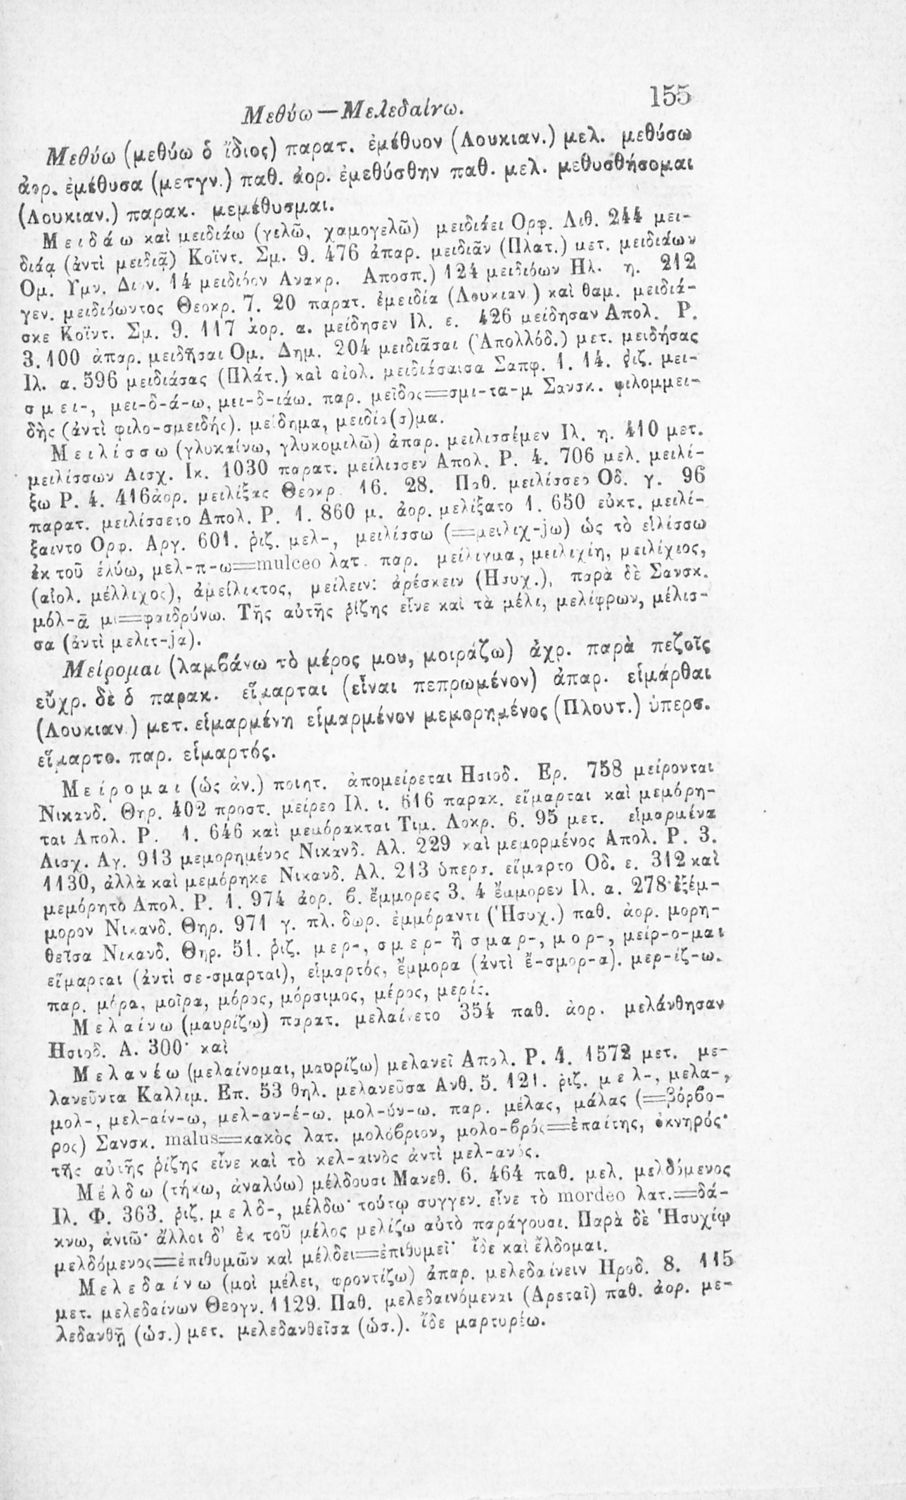 Μεθύω—Μελεδαίνω. 155
Μεθύω (μεθύω ὁ ἴδιος) παρατ. ἐμέθυον (Λουκιαν.) μελ. μεθύσω
ἀορ. ἐμέθυσα (μετγν.) παθ. ἀορ. ἐμεθύσθην παθ. μελ. μεθυσθήσομαι
(Λουκιαν.) παρακ. μεμέθυσμαι.
Μειδάω καὶ μειδιάω (γελῶ, χαμογελῶ) μειδιάει Ορφ. Λιθ. 244 μει-
διάᾳ (ἀντὶ μειδιᾷ) Κοϊντ. Σμ. 9. 476 ἀπαρ. μειδιᾶν (Πλατ.) μετ. μειδιάων
Ομ. Υμν. Διον. 14 μειδιόον Ανακρ. Αποσπ.) 124 μειδιόων Ηλ. η. 212
γεν. μειδιόωντος Θεοκρ. 7. 20 παρατ. ἐμειδία (Λουκιαν.) καὶ θαμ. μειδιά-
σκε Κοϊντ. Σμ. 9. 117 ἀορ. α. μείδησεν Ιλ. ε. 426 μείδησαν Απολ. Ρ.
3. 100 ἀπαρ. μειδῆσαι Ομ. Δημ. 204 μειδιᾶσαι (Ἀπολλόδ.) μετ. μειδήσας
Ιλ. α. 596 μειδιάσας (Πλάτ.) καὶ αἰολ. μειδιάσαισα Σαπφ. 1. 14. ῥιζ. μει-
σμει-, μει-δ-ά-ω, μει-δ-ιάω. παρ. μεῖδος=σμι-τα-μ Σανσκ. φιλομμει-
δὴς (ἀντὶ φιλο-σμειδής). μείδημα, μειδία(σ)μα.
Μειλίσσω (γλυκαίνω, γλυκομιλῶ) ἀπαρ. μειλισσέμεν Ιλ. η. 410 μετ.
μειλίσσων Αισχ. Ικ. 1030 παρατ. μείλισσεν Απολ. Ρ. 4. 706 μελ. μειλί-
ξω Ρ. 4. 416 ἀορ. μειλίξας Θεοκρ. 16. 28. Παθ. μειλίσσεο Οδ. γ. 96
παρατ. μειλίσσετο Απολ. Ρ. 1. 860 μ. ἀορ. μελίξατο 1. 650 εὐκτ. μειλί-
ξαιντο Ορφ. Αργ. 601. ῥιζ. μελ-, μειλίσσω (=μειλιχ-jω) ὡς τὸ εἱλίσσω
ἐκ τοῦ ἑλύω, μελ-π-ω=mulceo λατ. παρ. μείλιγμα, μειλιχίη, μειλίχιος,
(αἰολ. μέλλιχος), ἀμείλικτος, μείλειν: ἀρέσκειν (Ησυχ.), παρὰ δὲ Σανσκ.
μόλ-ᾳ μι=φαιδρύνω. Τῆς αὐτῆς ῥίζης εἶνε καὶ τὰ μέλι, μελίφρων, μέλισ-
σα (ἀντὶ μελιτ-jα).
Μείρομαι (λαμβάνω τὸ μέρος μου, μοιράζω) ἀχρ. παρὰ πεζοῖς
εὔχρ. δὲ ὁ παρακ. εἵμαρται (εἶναι πεπρωμένον) ἀπαρ. εἱμάρθαι
(Λουκιαν.) μετ. εἱμαρμένη εἱμαρμένον μεμορημένος (Πλουτ.) ὑπερσ.
εἵμαρτο. παρ. εἱμαρτός.
Μείρομαι (ὡς ἀν.) ποιητ. ἀπομείρεται Ησιοδ. Ερ. 758 μείρονται
Νικανδ. Θηρ. 402 προστ. μείρεο Ιλ. ι. 616 παρακ. εἵμαρται καὶ μεμόρη-
ται Απολ. Ρ. 1. 646 καὶ μεμόρακται Τιμ. Λοκρ. 6. 95 μετ. εἱμαρμένα
Αισχ. Αγ. 913 μεμορημένος Νικανδ. Αλ. 229 καὶ μεμορμένος Απολ. Ρ. 3.
1130, ἀλλὰ καὶ μεμόρηκε Νικανδ. Αλ. 213 ὑπερσ. εἵμαρτο Οδ. ε. 312 καὶ
μεμόρητο Απολ. Ρ. 1. 974 ἀορ. β. ἔμμορες 3. 4 ἔμμορεν Ιλ. α. 278 ἐξέμ-
μορον Νικανδ. Θηρ. 971 γ. πλ. δωρ. ἐμμόραντι (Ἡσυχ.) παθ. ἀορ. μορη-
θεῖσα Νικανδ. Θηρ. 51. ῥιζ. μερ-, σμερ- ἢ σμαρ-, μορ-, μείρ-ο-μαι
εἵμαρται (ἀντὶ σε-σμαρται), εἱμαρτός, ἔμμορα (ἀντὶ ἔ-σμορ-α). μερ-ίζ-ω.
παρ. μόρα, μοῖρα, μόρος, μόρσιμος, μέρος, μερίς.
Μελαίνω (μαυρίζω) παρατ. μελαίνετο 354 παθ. ἀορ. μελάνθησαν
Ησιοδ. Α. 300· καὶ
Μελανέω (μελαίνομαι, μαυρίζω) μελανεῖ Απολ. Ρ. 4. 1572 μετ. με-
λανεῦντα Καλλιμ. Επ. 53 θηλ. μελανεῦσα Ανθ. 5. 121. ῥιζ. μελ-, μελα-,
μολ-, μελ-αίν-ω, μελ-αν-έ-ω. μολ-ύν-ω. παρ. μέλας, μάλας (=βόρβο-
ρος) Σανσκ. malus=κακὸς λατ. μολόβριον, μολο-βρός=ἐπαίτης, ὀκνηρός·
τῆς αὐτῆς ῥίζης εἶνε καὶ τὸ κελ-αινὸς ἀντὶ μελ-ανός.
Μέλδω (τήκω, ἀναλύω) μέλδουσι Μανεθ. 6. 464 παθ. μελ. μελδόμενος
Ιλ. Φ. 363. ῥιζ. μελδ-, μέλδω· τούτῳ συγγεν. εἶνε τὸ mordeo λατ.=δά-
κνω, ἀνιῶ· ἄλλοι δ' ἐκ τοῦ μέλος μελίζω αὐτὸ παράγουσι. Παρὰ δὲ Ἡσυχίῳ
μελδόμενος=ἐπιθυμῶν καὶ μέλδει=ἐπιθυμεῖ· ἴδε καὶ ἔλδομαι.
Μελεδαίνω (μοὶ μέλει, φροντίζω) ἀπαρ. μελεδαίνειν Ηροδ. 8. 115
μετ. μελεδαίνων Θεογν. 1129. Παθ. μελεδαινόμεναι (Αρεταῖ) παθ. ἀορ. με-
λεδανθῇ (ὡσ.) μετ. μελεδανθεῖσα (ὡσ.). ἴδε μαρτυρέω.